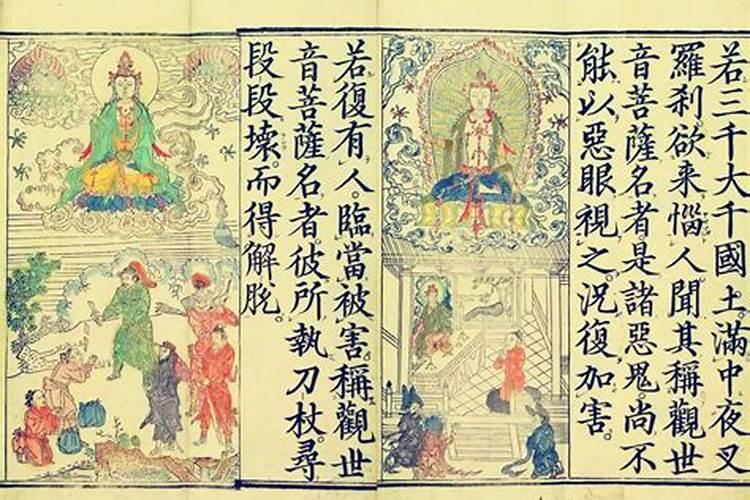 若三千大千國土。滿中夜叉
羅刹。欲来惱人。聞其稱觀世
音菩薩名者。是諸惡鬼。尚不
能以惡眼視之。況復加害。
若復有人。臨當被害。稱觀世
音菩薩名者。彼所執刀杖。尋
段段壞。而得解脫。